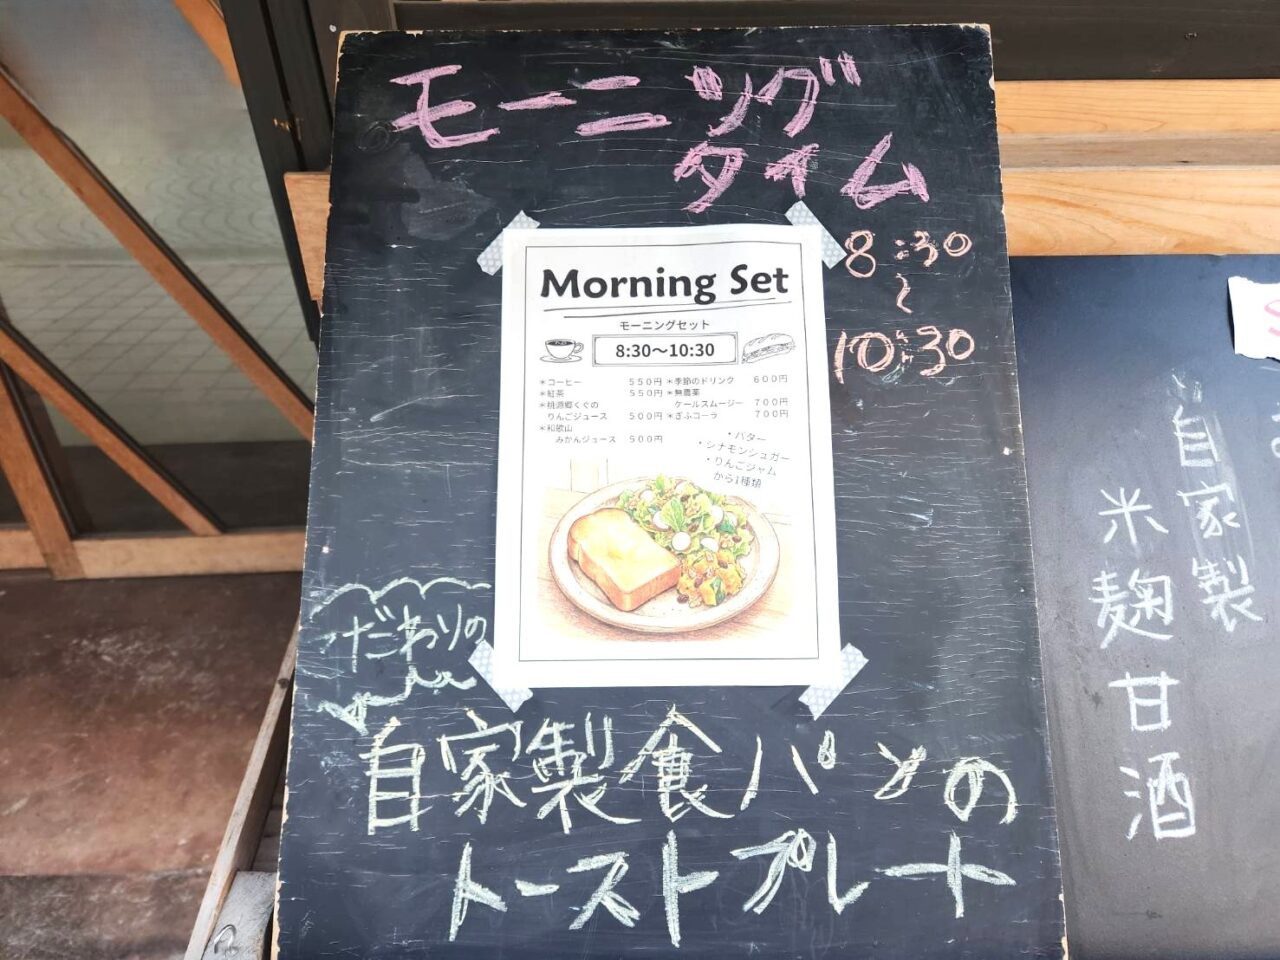 モーニング
タイム
8:30
〜
10:30
Morning Set
モーニングセット
8:30〜10:30
＊コーヒー 550円
＊紅茶 550円
＊桃源郷くぐの
りんごジュース 500円
＊和歌山
みかんジュース 500円
＊季節のドリンク 600円
＊無農薬
ケールスムージー 700円
＊ぎふコーラ 700円
・バター
・シナモンシュガー
・りんごジャム
から1種類
だわりの
自家製食パンの
トーストプレート
自家製
米麹甘酒